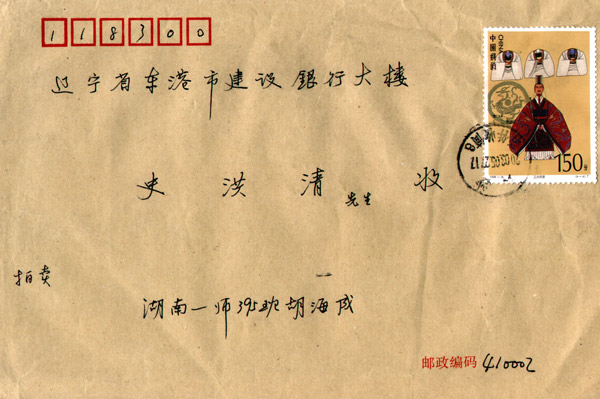 118300
辽宁省东港市建设銀行大楼
史洪清 先生 收
拍卖
湖南一师395 胡海成
邮政编码 410002
中国邮政
CHINA
150分